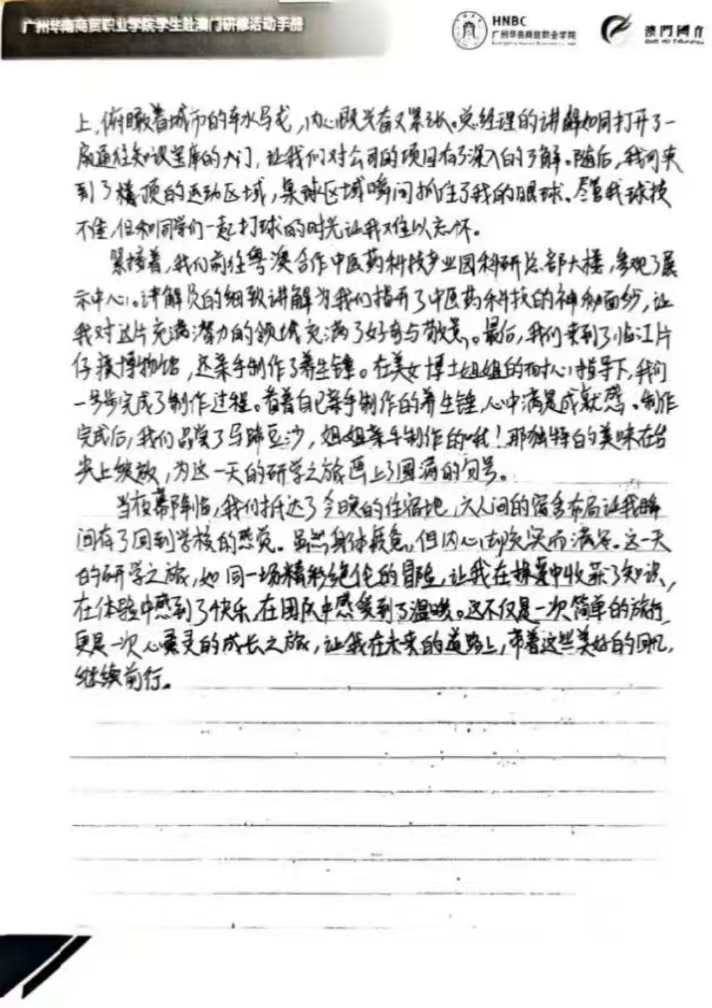 广州华南商贸职业学院学生赴澳门研修活动手册
HNBC
广州华南商贸职业学院
澳門國育
上,俯瞰着城市的车水马龙,内心既兴奋又紧张。总经理的讲解如同打开了一
扇通往知识宝库的大门,让我们对公司的项目有了深入的了解。随后,我们来
到了楼顶的运动区域,桌球区域瞬间抓住了我的眼球。尽管我球技
不佳,但和同学们一起打球的时光让我难以忘怀。
紧接着,我们前往粤澳合作中医药科技产业园科研总部大楼,参观了展
示中心。讲解员的细致讲解为我们揭开了中医药科技的神秘面纱,让
我对这片充满潜力的领域充满了好奇与敬意。最后,我们来到了临江片
仔癀博物馆,还亲手制作了养生锤。在美女博士姐姐的耐心指导下,我们
一步步完成了制作过程。看着自己亲手制作的养生锤,心中满是成就感。制作
完成后,我们品尝了马蹄豆沙,姐姐亲手制作的哦!那独特的美味在舌
尖上绽放,为这一天的研学之旅画上了圆满的句号。
当夜幕降临,我们抵达了今晚的住宿地,六人间的宿舍布局让我瞬
间有了回到学校的感觉。虽然身体疲惫,但内心却充实而满足。这一天
的研学之旅,如同一场精彩绝伦的冒险,让我在探索中收获了知识,
在体验中感到了快乐,在团队中感受到了温暖。这不仅是一次简单的旅行,
更是一次心灵的成长之旅,让我在未来的道路上,带着这些美好的回忆,
继续前行。